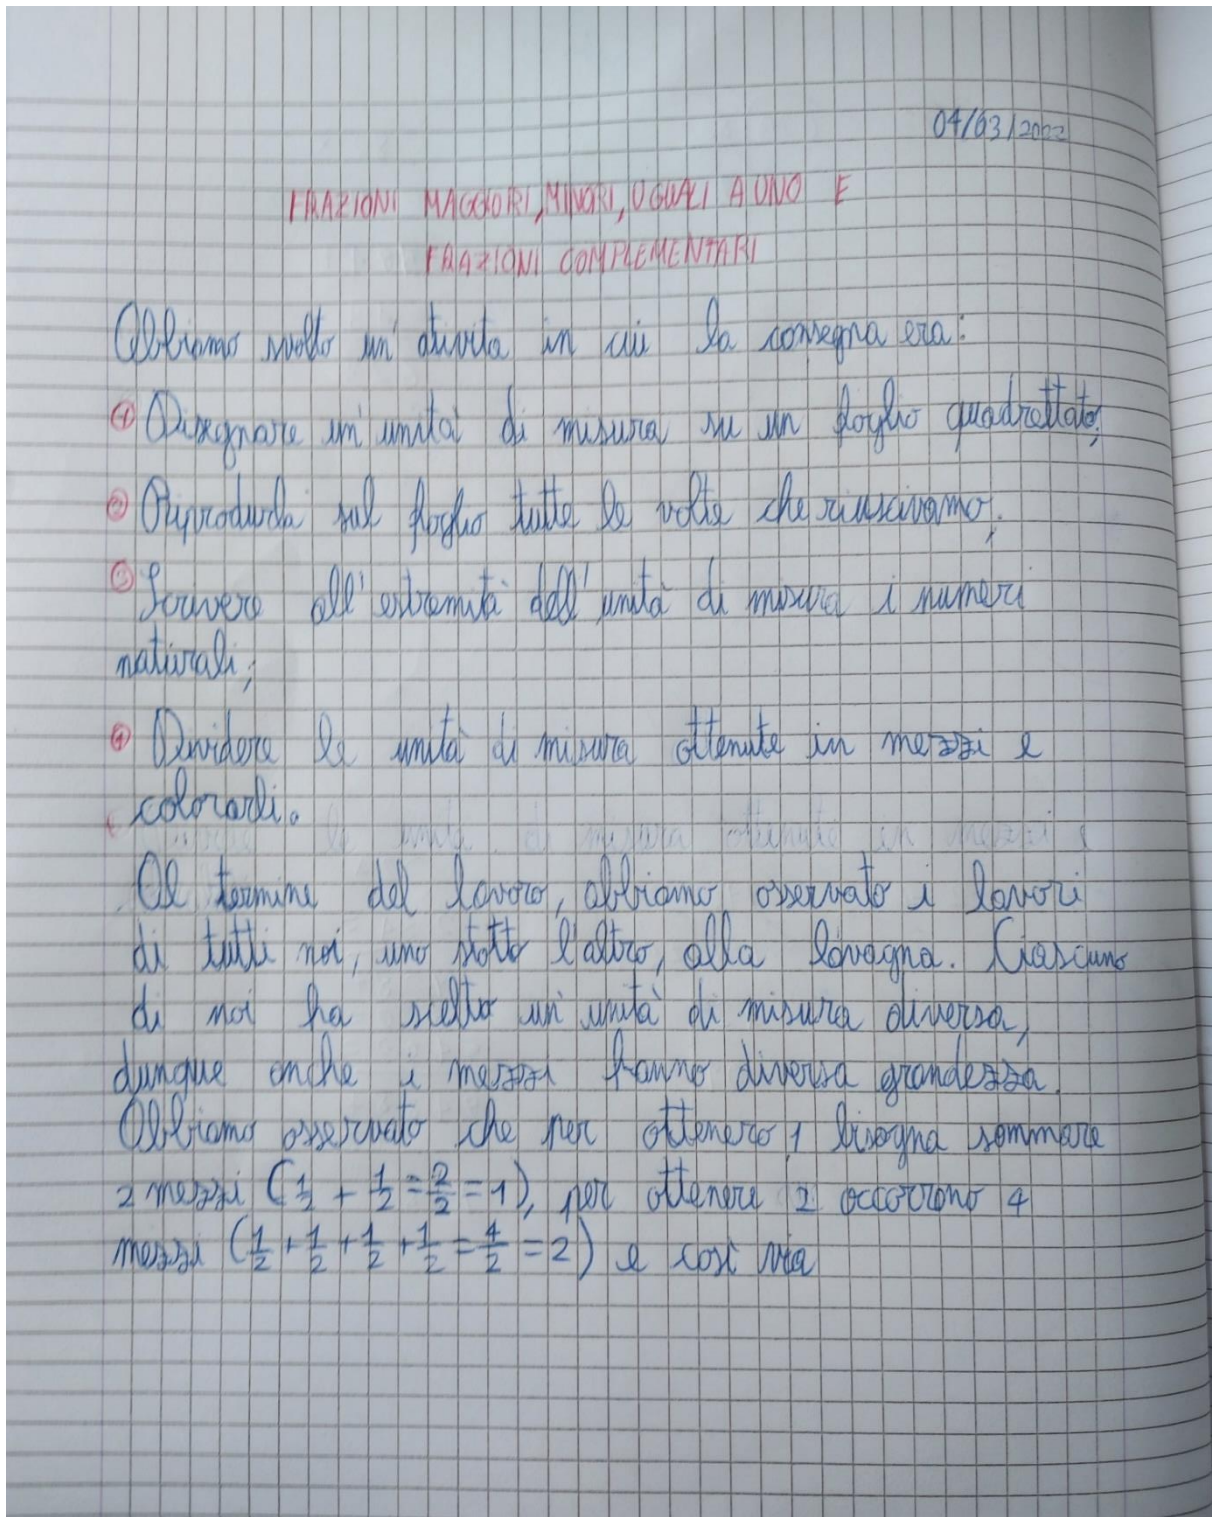 04/03/2022
FRAZIONI MAGGIORI, MINORI, UGUALI A UNO E
FRAZIONI COMPLEMENTARI
Abbiamo svolto un' ativita in cui la consegna era:
1 Disegnare un' unità di misura su un foglio quadrettato;
2 Riprodurla sul foglio tutte le volte che riuscivamo;
3 Scrivere all'estremità dell'unità di misura i numeri
naturali;
4 Dividere le unità di misura ottenute in mezzi e
colorarli.
Al termine del lavoro, abbiamo osservato i lavori
di tutti noi, uno sotto l'altro, alla lavagna. Ciascuno
di noi ha scelto un' unità di misura diversa,
dunque anche i mezzi hanno diversa grandezza.
Abbiamo osservato che per ottenere 1 bisogna sommare
2 mezzi (1/2 + 1/2 = 2/2 = 1), per ottenere 2 occorrono 4
mezzi (1/2 + 1/2 + 1/2 + 1/2 = 4/2 = 2) e così via